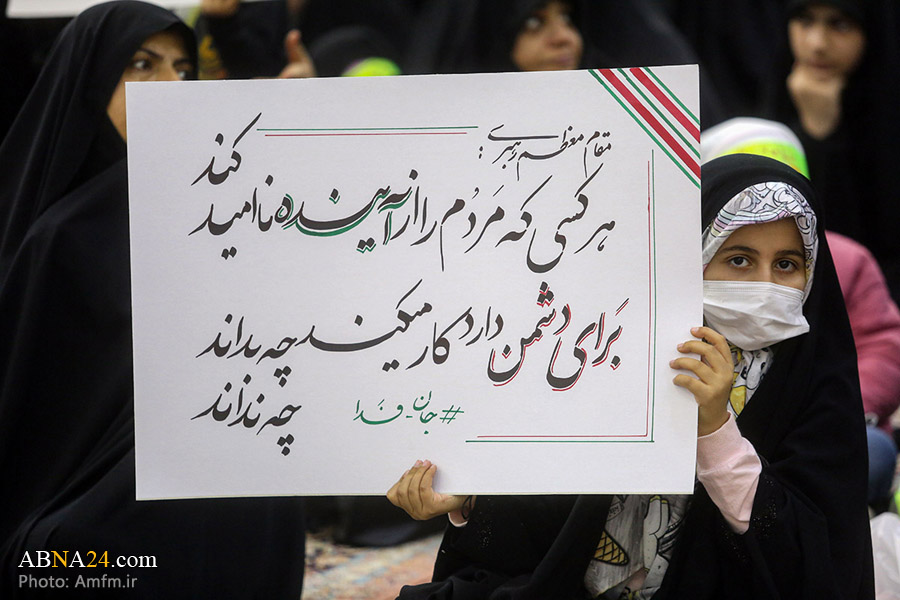 مقام معظم رهبری:
هر کسی که مَردُم را از آینده ناامید کند
بَرای دشمن دارد کار میکند چه بداند
چه نداند
#جان_فَدا
ABNA24.com
Photo: Amfm.ir